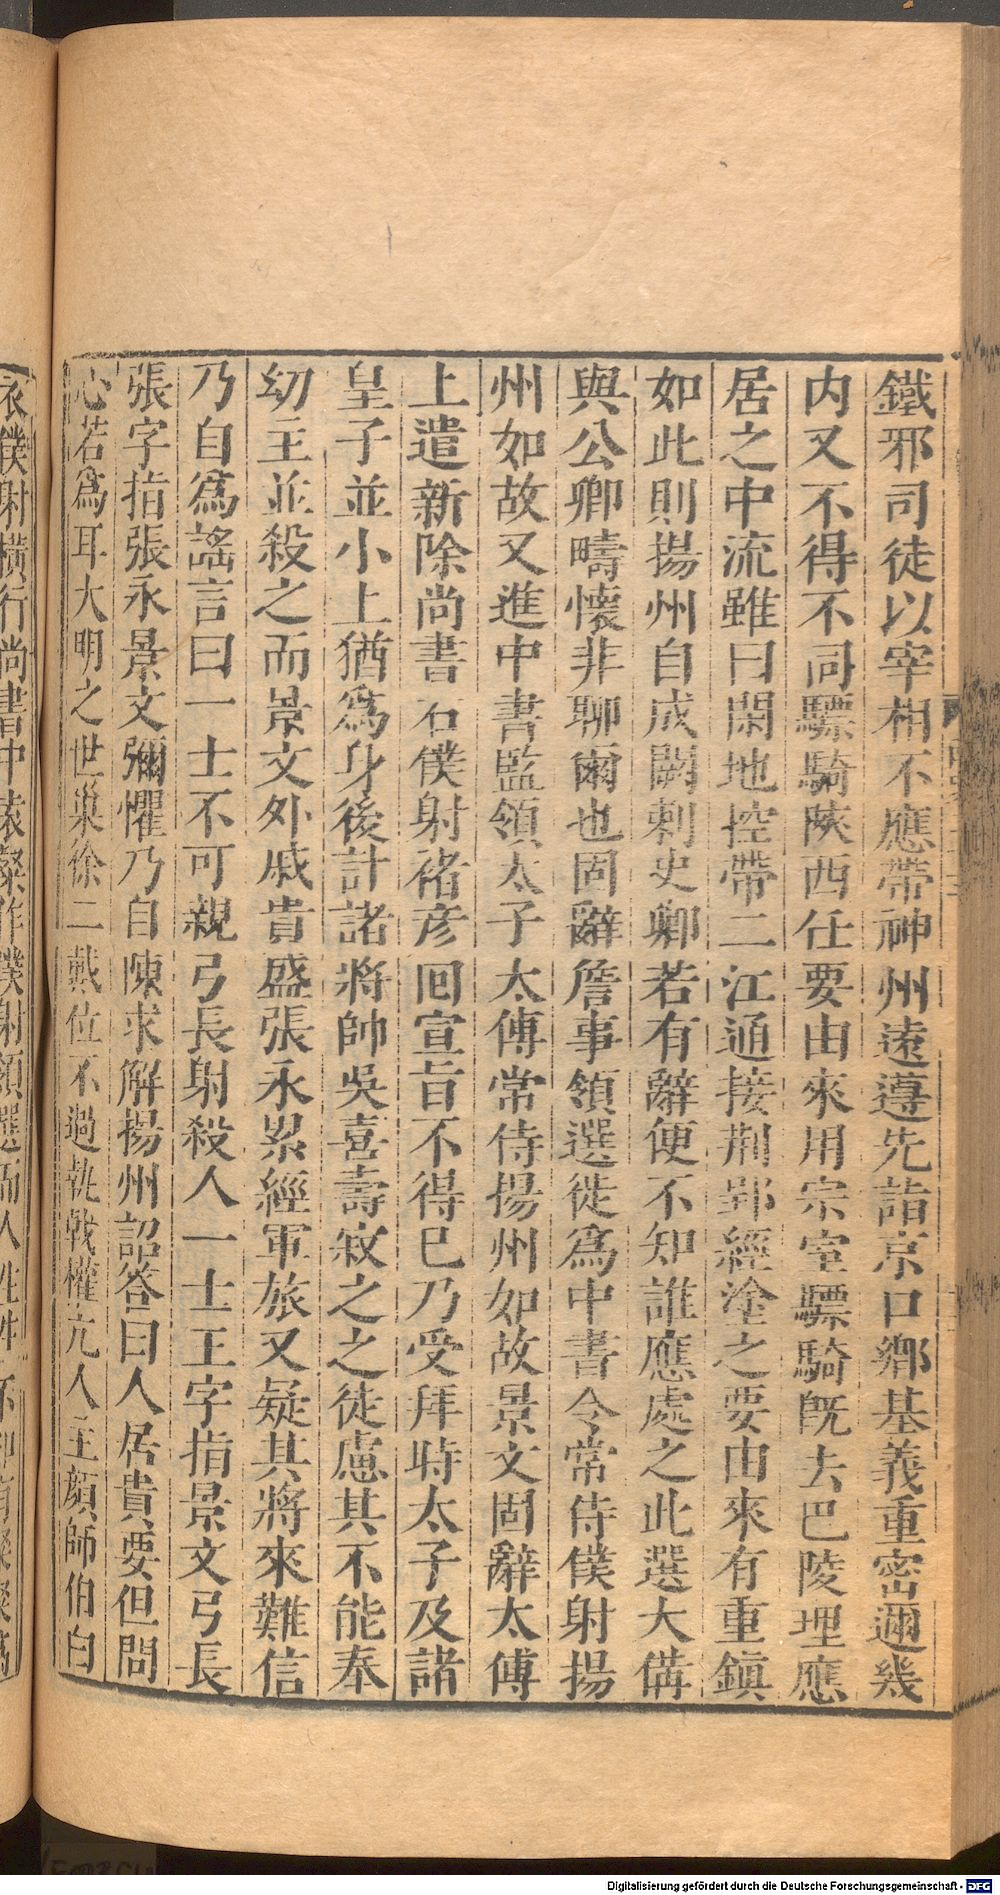 鐵邪司徒以宰相不應帶神州遠遵先詣京口鄉基義重密邇畿
内又不得不同驃騎陝西任要由來用宗室驃騎既去巴陵理應
居之中流雖曰閑地控帶二江通接荆郢經塗之要由來有重鎮
如此則揚州自成闕刺史卿若有辭便不知誰應處之此選大備
與公卿疇懷非聊爾也固辭詹事領選徙爲中書令常侍僕射揚
州如故又進中書監領太子太傅常侍揚州如故景文固辭太傅
上遣新除尚書右僕射褚彦囘宣旨不得已乃受拜時太子及諸
皇子並小上猶爲身後計諸將帥吳喜壽寂之之徒慮其不能奉
幼主並殺之而景文外戚貴盛張永累經軍旅又疑其將來難信
乃自爲謠言曰一士不可親弓長射殺人一士王字指景文弓長
張字指張永景文彌懼乃自陳求解揚州詔答曰人居貴要但問
心若爲耳大明之世巢徐二戴位不過執戟權亢人主顔師伯白
衣僕射橫行尚書中袁粲作僕射領選而人往往不知有粲粲爲
Digitalisierung gefördert durch die Deutsche Forschungsgemeinschaft - DFG